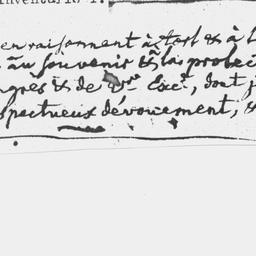 en raisonnent à tort & à t
au souvenir & à la protec
grès & de Vre. Exce., dont j
spectueux dévouement, &